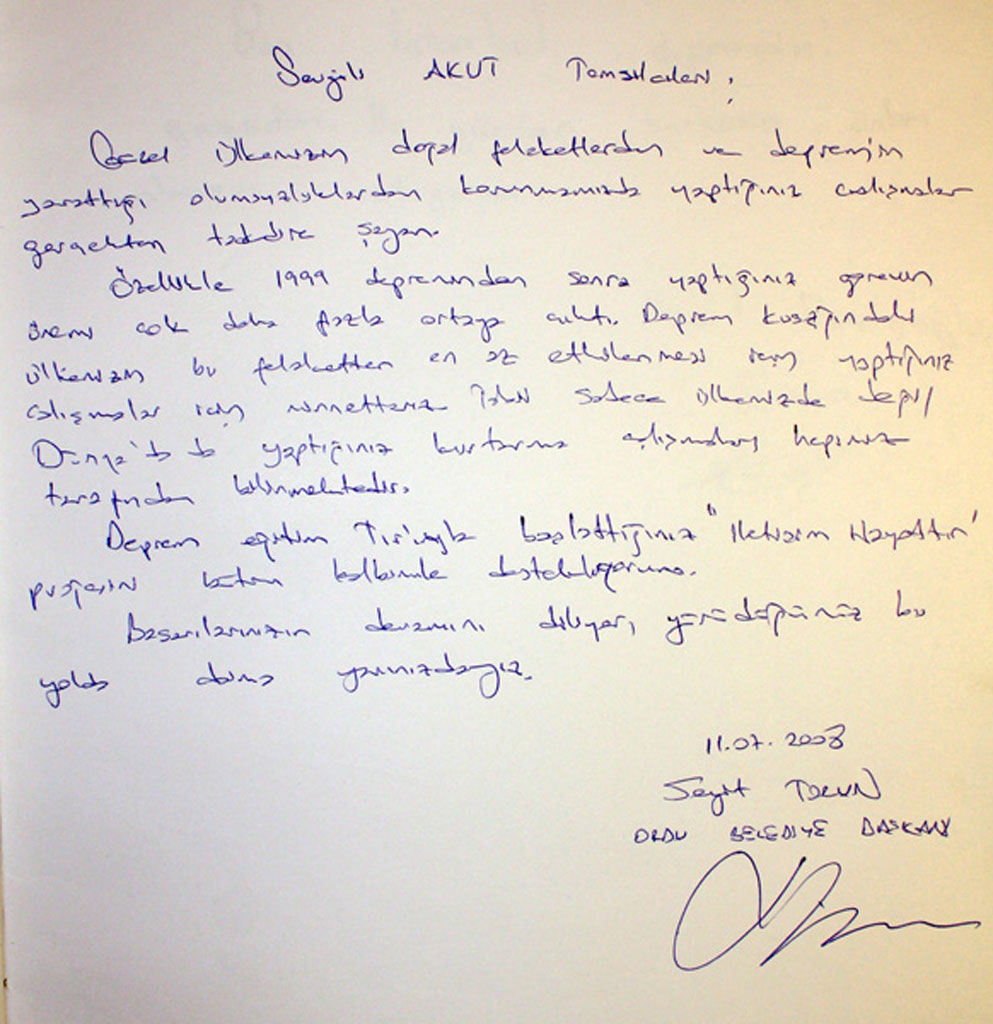 Sevgili AKUT Temsilcileri,
Güzel ülkemizin doğal felaketlerden ve depremin
yarattığı olumsuzluklardan korunmamızda yaptığınız çalışmalar
gerçekten takdire şayan.
Özellikle 1999 depreminden sonra yaptığınız görevin
önemi çok daha fazla ortaya çıktı. Deprem kuşağındaki
ülkemizin bu felaketten en az etkilenmesi için yaptığınız
çalışmalar için minnettarız sadece ülkemizde değil
Dünya'da da yaptığınız kurtarma çalışmaları hepimiz
tarafından bilinmektedir.
Deprem eğitim Tır'ıyla başlattığınız "İletişim Hayattır"
projesini bütün kalbimle destekliyorum.
Başarılarınızın devamını diliyor, yürüdüğünüz bu
yolda daima yanınızdayız.
11.07.2008
Seyit TORUN
ORDU BELEDİYE BAŞKANI